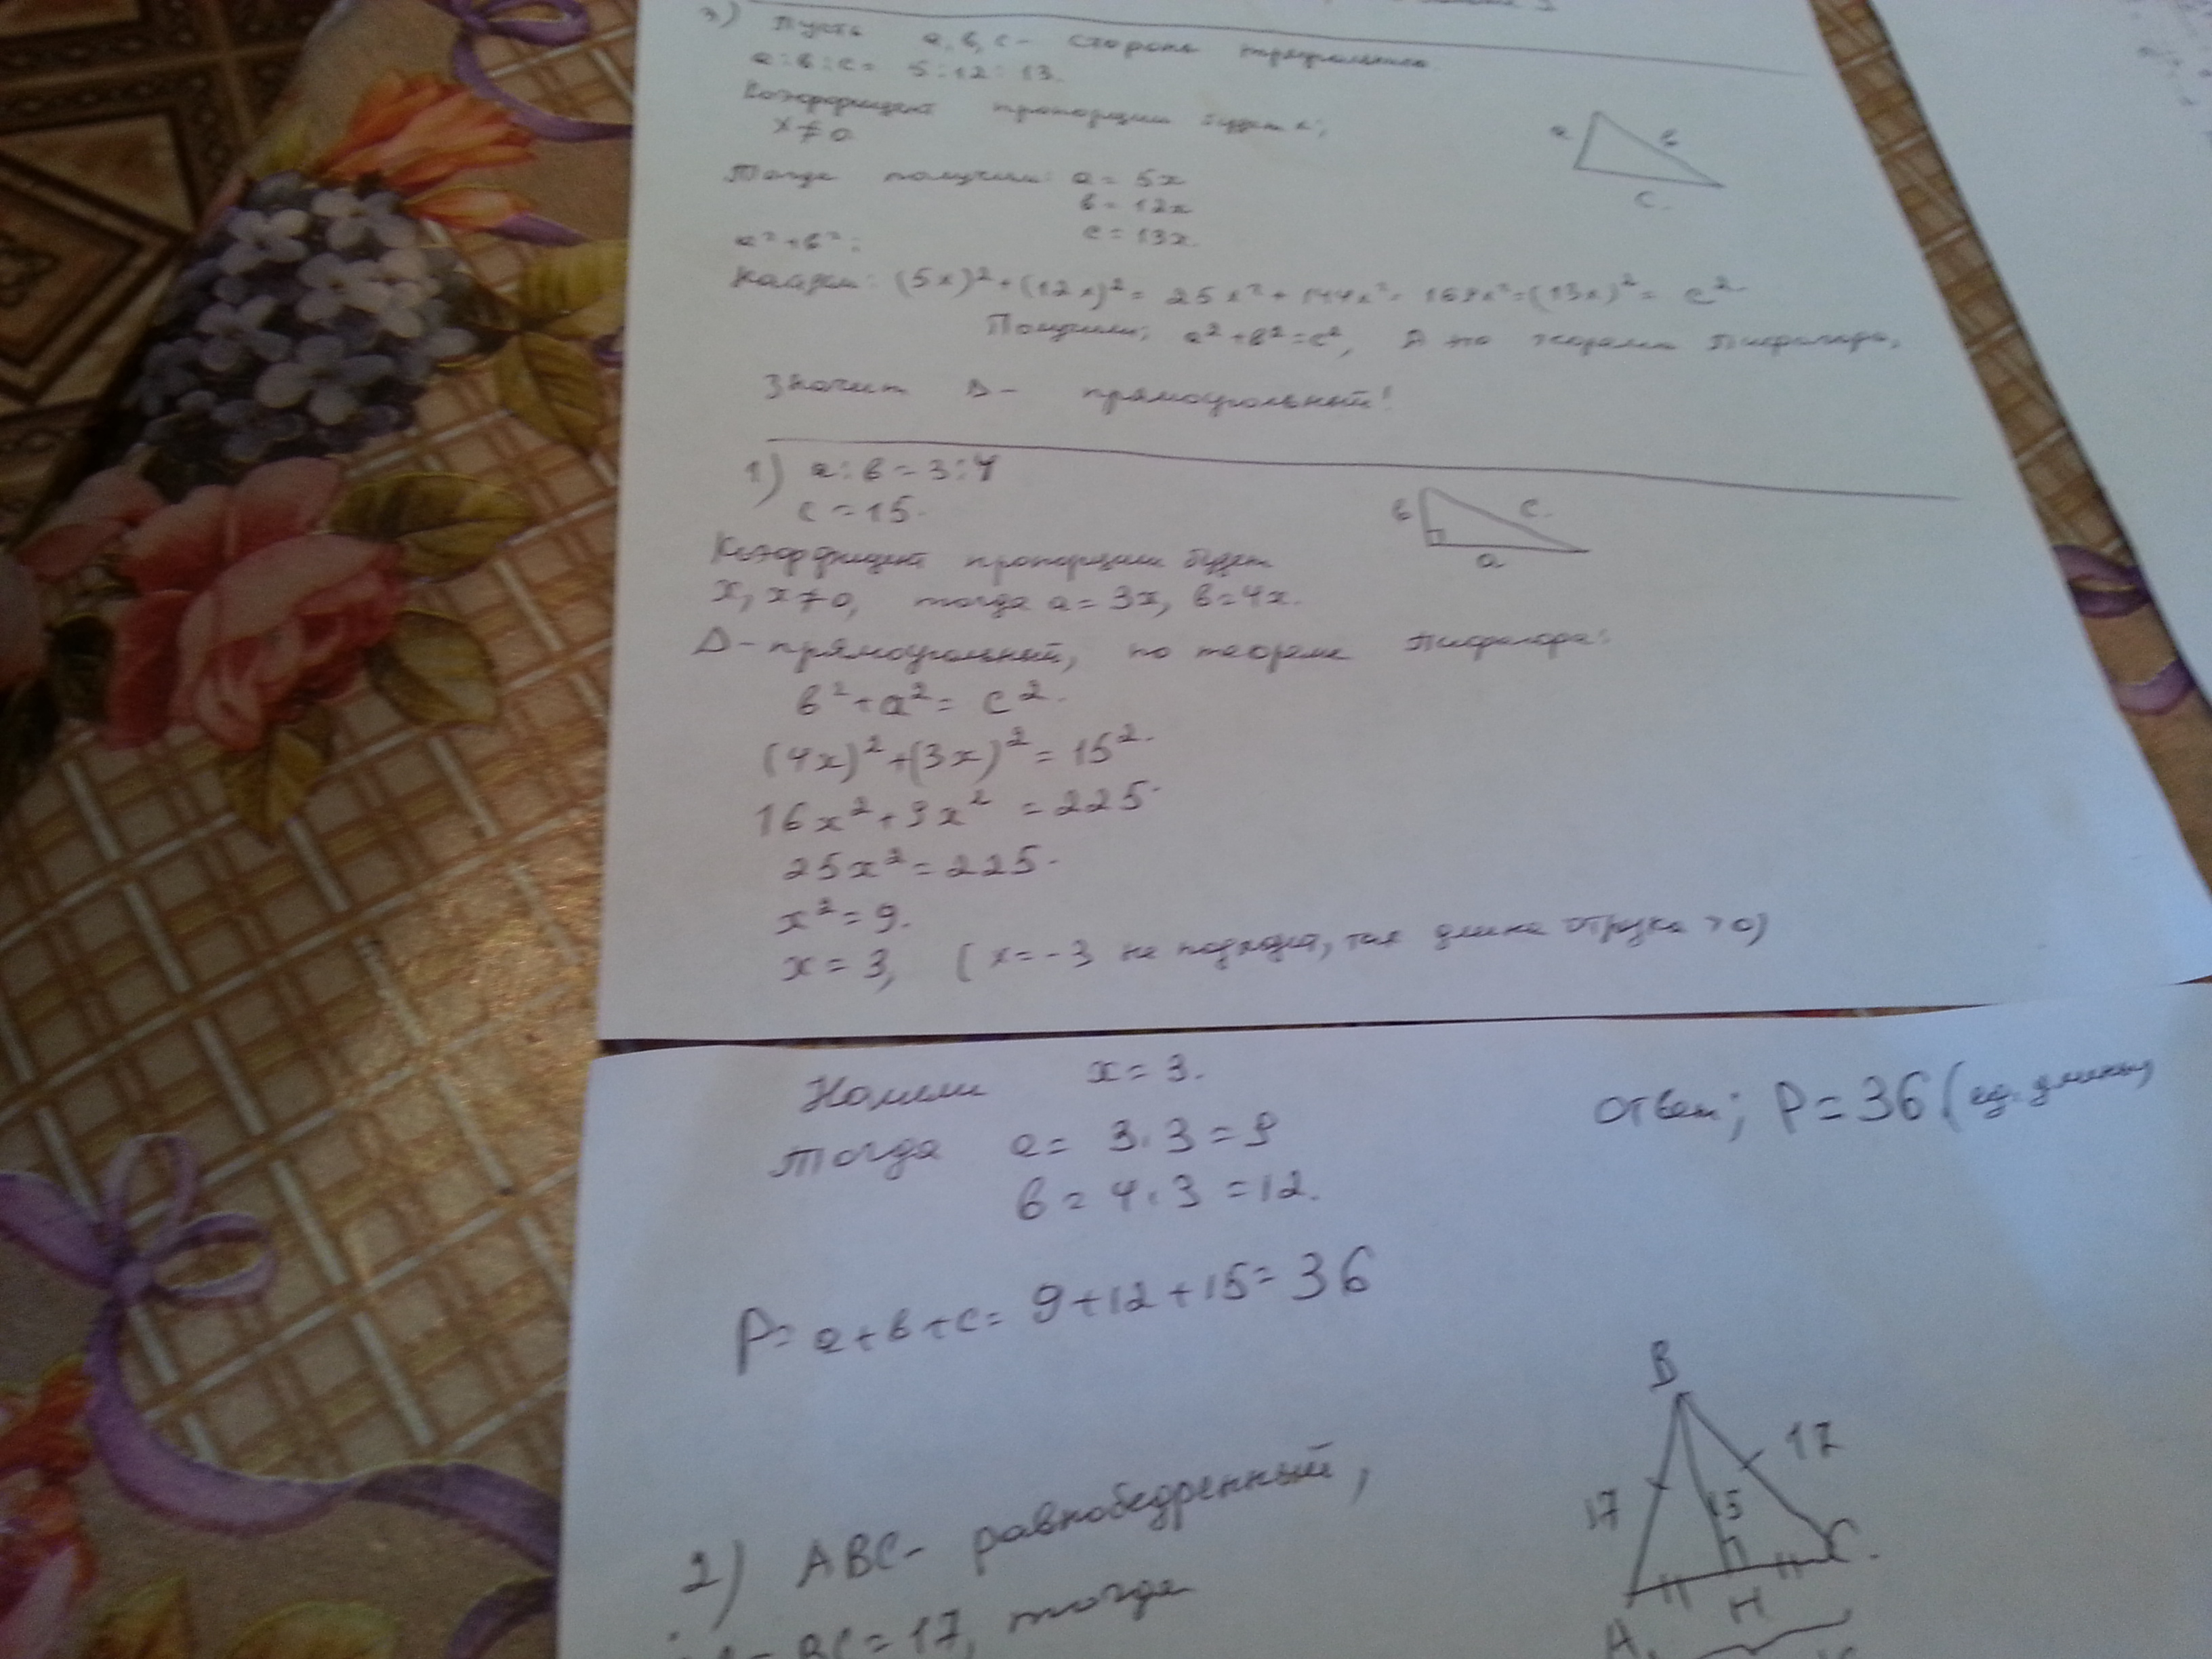 3) Пусть a, b, c - стороны треугольника.
a : b : c = 5 : 12 : 13.
Коэффициент пропорции будет x;
x ≠ 0
Тогда получим: a = 5x
b = 12x
c = 13x.
a² + b²;
Найдем: (5x)² + (12x)² = 25x² + 144x² = 169x² = (13x)² = c²
Получили; a² + b² = c², А это теорема Пифагора,
Значит Δ - прямоугольный!
a
b
c.
1) a : b = 3 : 4
c = 15.
Коэффициент пропорции будет
x, x ≠ 0, тогда a = 3x, b = 4x.
Δ - прямоугольный, по теореме Пифагора:
b² + a² = c².
(4x)² + (3x)² = 15².
16x² + 9x² = 225.
25x² = 225.
x² = 9.
x = 3, (x = -3 не подходит, так длина отрезка > 0)
b
c.
a
Нашли x = 3.
Тогда a = 3.3 = 9
b = 4.3 = 12.
P = a + b + c = 9 + 12 + 15 = 36
Ответ; P = 36 (ед. длины)
2) ABC - равнобедренный,
BC = 17, тогда
B
17
17
15
A
H
C.